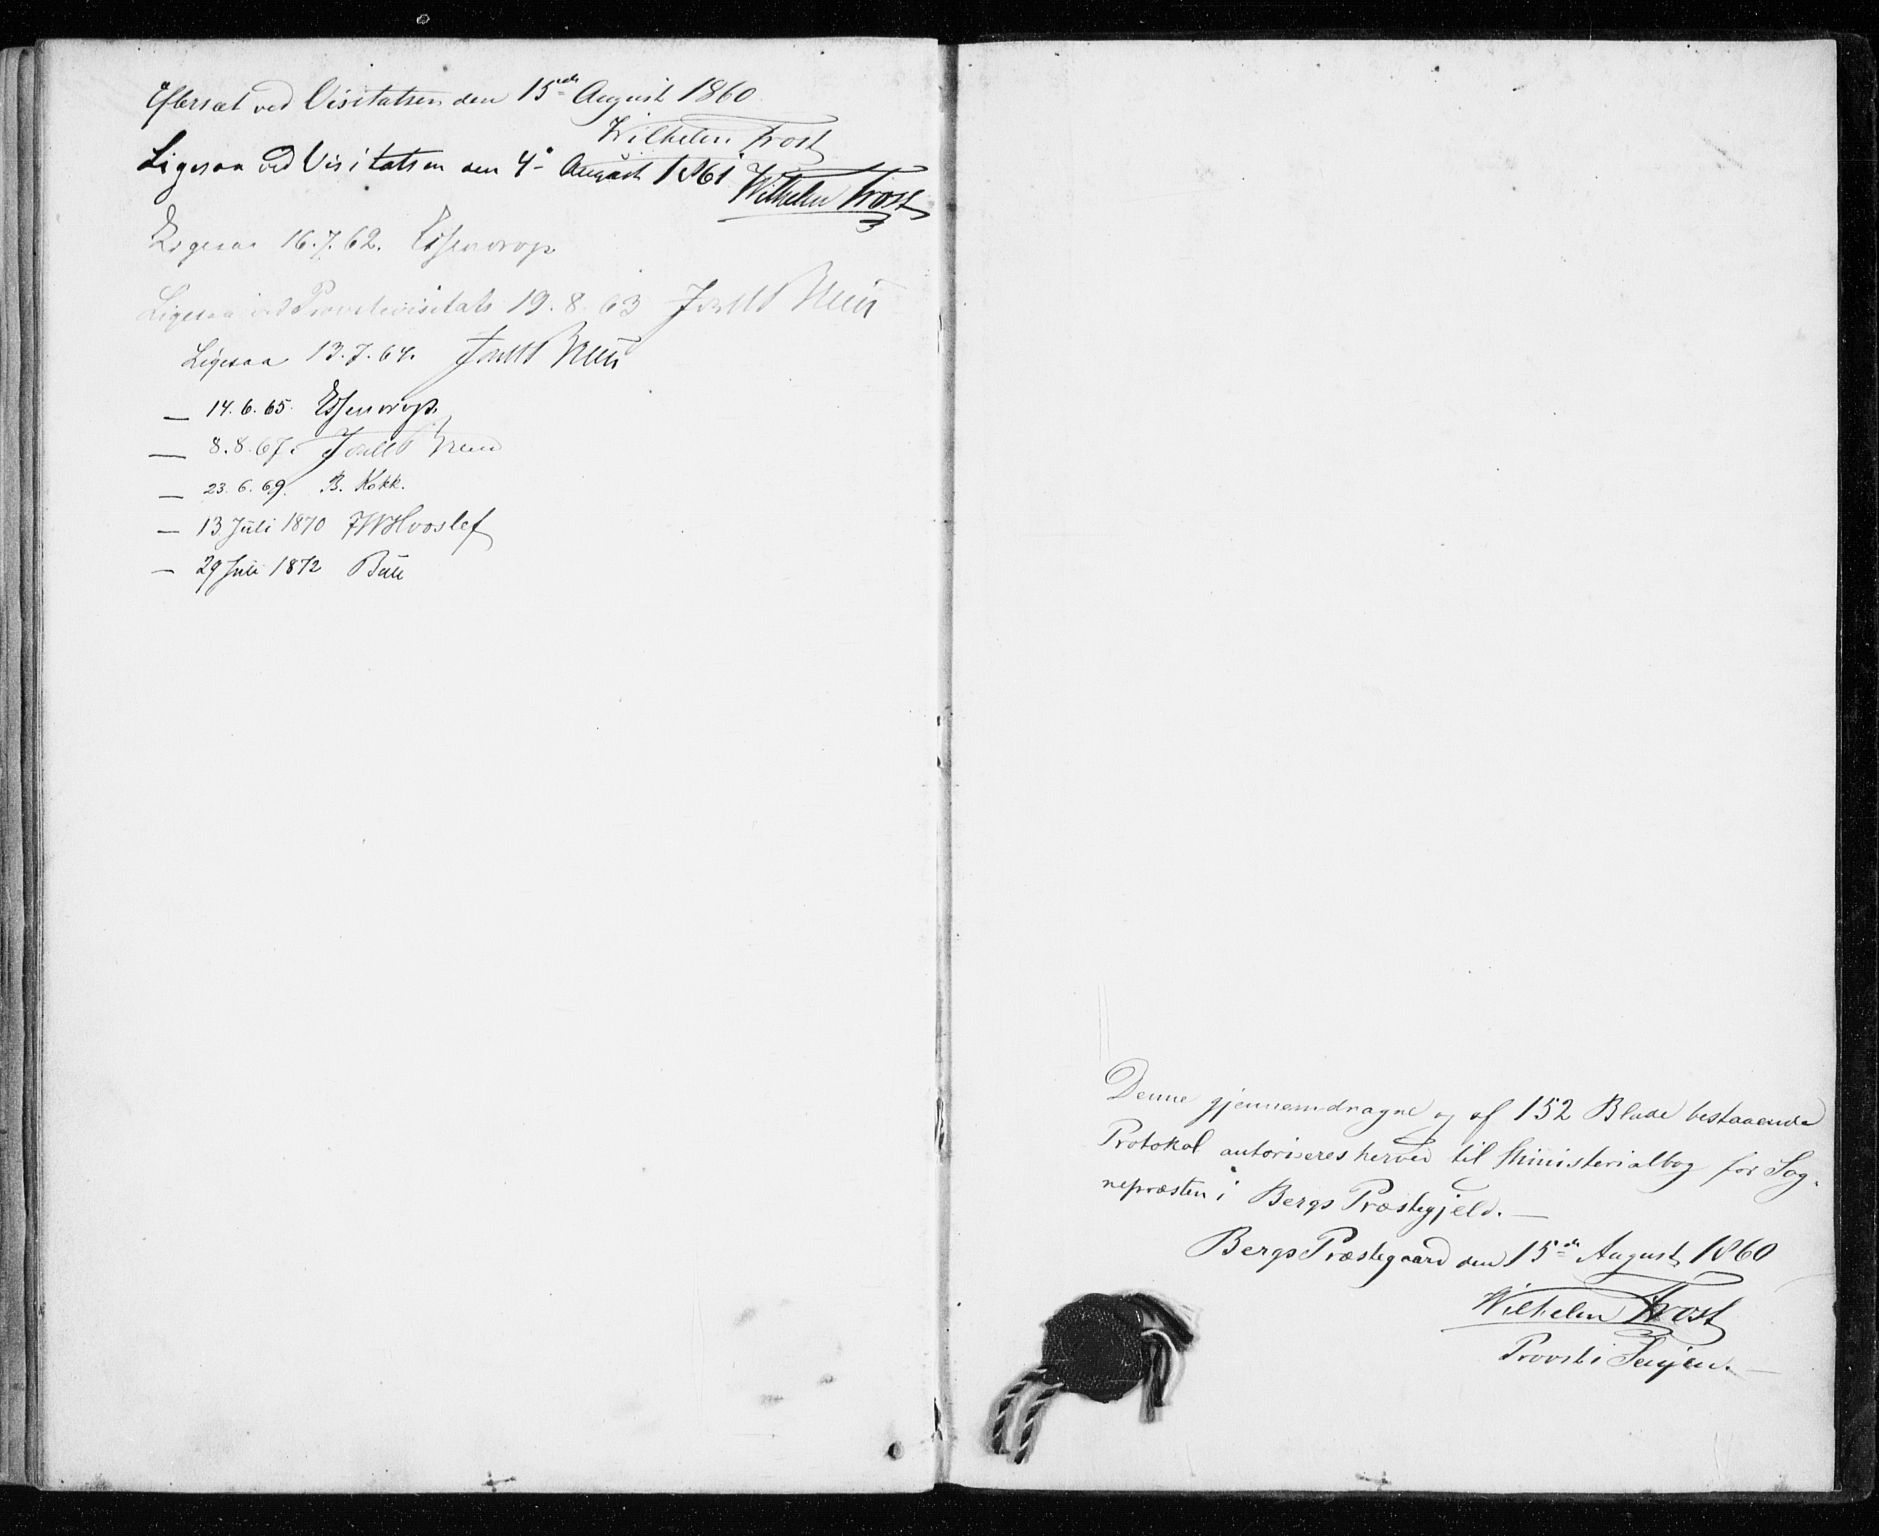 Eftersat ved Visitatsen den 15de August 1860
Wilhelm Frost
Ligesaa ved Visitatsen den 4de August 1861 Wilhelm Frost
Ligesaa 16.7.62. Essendrop
Ligesaa ved Provstevisitats 19.8.63
Ligesaa 13.7.64.
— 14.6.65. Essendrop.
— 8.8.67.
— 23.6.69. B. Kokk.
— 13 Juli 1870 FWHvoslef
— 29 Juli 1872
Denne gjennemdragne og af 152 Blade bestaaende
Protokol autoriseres herved til Ministerialbog for Sog-
nepræsten i Bergs Præstegjeld. —
Bergs Præstegaard den 15de August 1860
Wilhelm Frost
Provst i Senjen. —